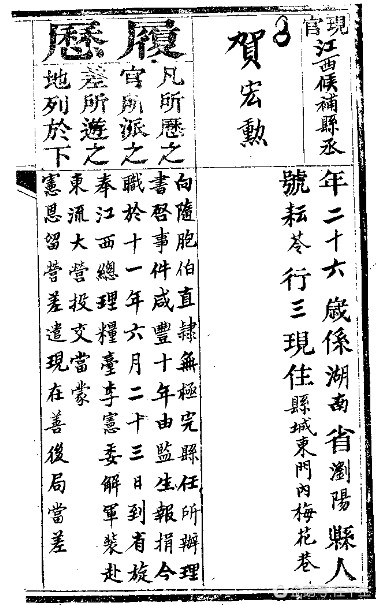 現官江西候補縣丞
賀宏勲
年二十六歲係湖南省瀏陽縣人
號耘苓行三現住縣城東門內梅花巷
履歷
凡所歷之
官所派之
差所遊之
地列於下
向隨胞伯直隸無極完縣任所辦理
書啓事件咸豐十年由監生報捐今
職於十一年六月二十三日到省旋
奉江西總理糧臺李憲委解軍裝赴
東流大營投交當蒙
憲恩留營差遣現在善後局當差